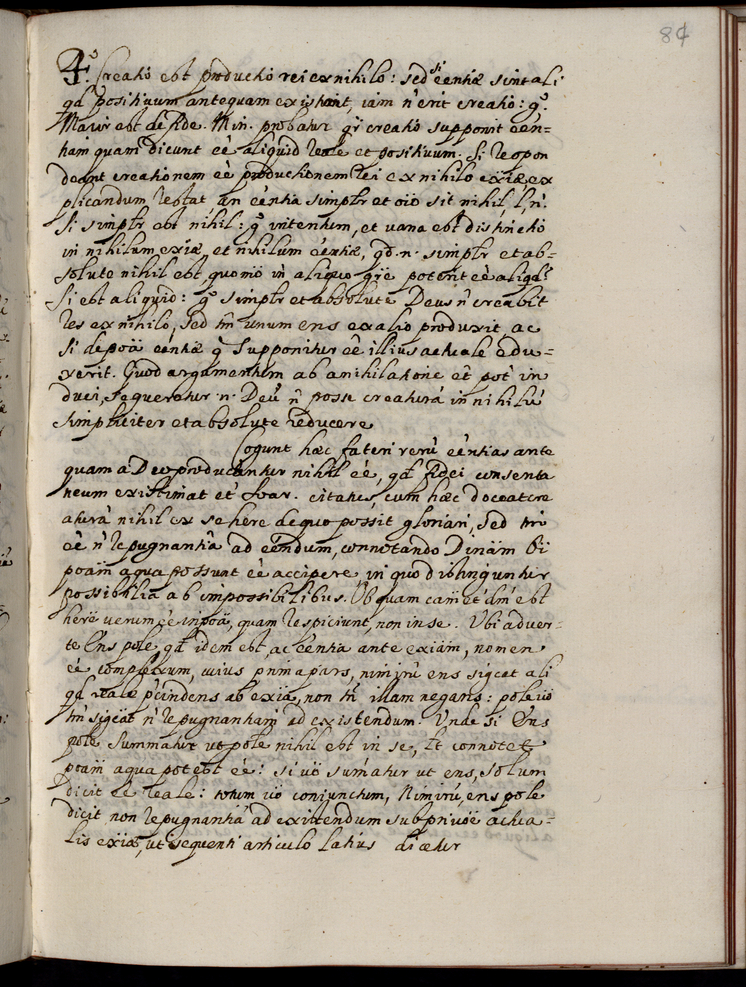 84
4.º Creatio est productio rei ex nihilo: sed si eentiæ sint ali
qd positiuum antequam existant, iam ñ erit creatio: gº.
Maior est de fide. Min. probatur qr creatio supponit een=
tiam quam dicunt eê aliquid reale et positiuum. Si respon
deant creationem eê productionem rei ex nihilo exiæ ex
plicandum restat, an eentia simplr et oiô sit nihil, l, n.
Si simplr est nihil: gº intentum, et uana est distinctio
in nihilum exiæ, et nihilum eentiæ, qd .n. simplr et ab=
solute nihil est, quomô in aliquo gñe poterit eê aliqd:
Si est aliquid: gº simplr et absolute Deus ñ creabit
res ex nihilo, sed tm unum ens ex alio produxit, ac
si de poâ eentiæ q supponitur eê illius actuale edu=
xerit. Quod argumentum ab anihilatione et pot in
duci, sequeretur .n. Deũ ñ posse creaturã in nihilũ
simpliciter et absolute reducere
Cogunt hæc fateri rerũ eentias ante
quam a Deo producantur nihil eê, qd fidei consenta
neum existimat et Soar. citatus, cum hæc doceat cre
aturã nihil ex se here de quo possit gloriari, sed tm
eê ñ repugnantia ad eendum, connotando Diuinam Oi
poam a qua possunt eê accipere, in quo distinguntur
possibilia ab impossibilibus. Ob quam cam et dm est
here uerum eê in poâ, quam respiciunt, non in se. Vbi aduer=
te Ens pole qd idem est, ac eentia ante exiam, nomen
eê complexum, cuius prima pars, nimirũ ens sigcat ali
qd reale pcindens ab exia, non tñ illam negans: pole uô
tm sigcat ñ repugnantiam ad existendum. Vnde si Ens
pole summatur ut pole nihil est in se, et connotet
poam a qua potest eê: si uô sumatur ut ens, solum
dicit eê reale: totum uô coniunctum, nimirũ, ens pole
dicit non repugnantiã ad existendum sub priuoê actua=
lis exiæ, ut sequenti articulo latius dicetur